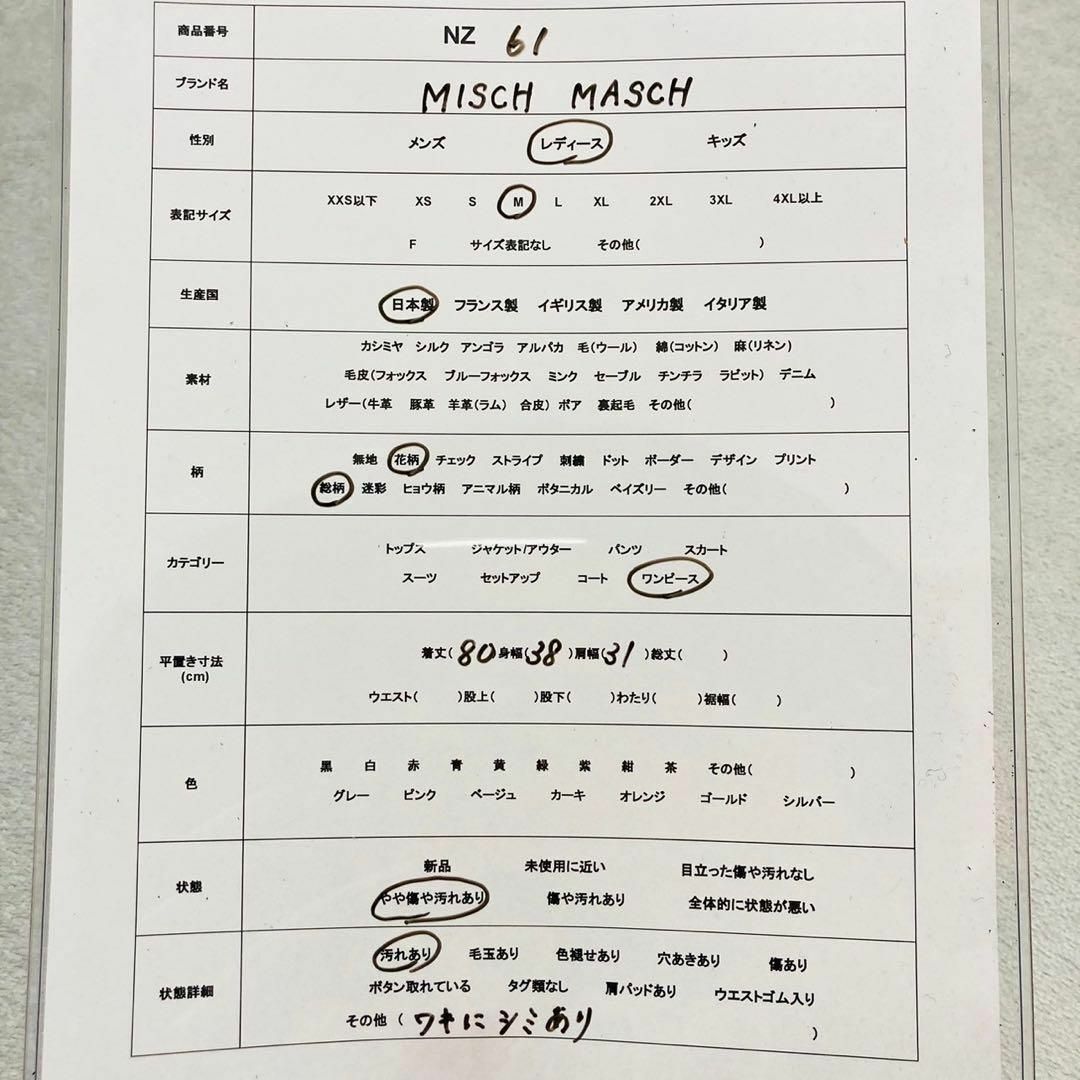 商品番号 NZ 61
ブランド名 MISCH MASCH
性別 メンズ レディース キッズ
表記サイズ XXS以下 XS S M L XL 2XL 3XL 4XL以上
F サイズ表記なし その他( )
生産国 日本製 フランス製 イギリス製 アメリカ製 イタリア製
素材 カシミヤ シルク アンゴラ アルパカ 毛(ウール) 綿(コットン) 麻(リネン)
毛皮(フォックス ブルーフォックス ミンク セーブル チンチラ ラビット) デニム
レザー(牛革 豚革 羊革(ラム) 合皮) ボア 裏起毛 その他( )
柄 無地 花柄 チェック ストライプ 刺繍 ドット ボーダー デザイン プリント
総柄 迷彩 ヒョウ柄 アニマル柄 ボタニカル ペイズリー その他( )
カテゴリー トップス ジャケット/アウター パンツ スカート
スーツ セットアップ コート ワンピース
平置き寸法 着丈(80 身幅(38 )肩幅(31 )総丈( )
(cm) ウエスト( )股上( )股下( )わたり( )裾幅( )
色 黒 白 赤 青 黄 緑 紫 紺 茶 その他( )
グレー ピンク ベージュ カーキ オレンジ ゴールド シルバー
状態 新品 未使用に近い 目立った傷や汚れなし
やや傷や汚れあり 傷や汚れあり 全体的に状態が悪い
状態詳細 汚れあり 毛玉あり 色褪せあり 穴あきあり 傷あり
ボタン取れている タグ類なし 肩パッドあり ウエストゴム入り
その他 ( ワキにシミあり )